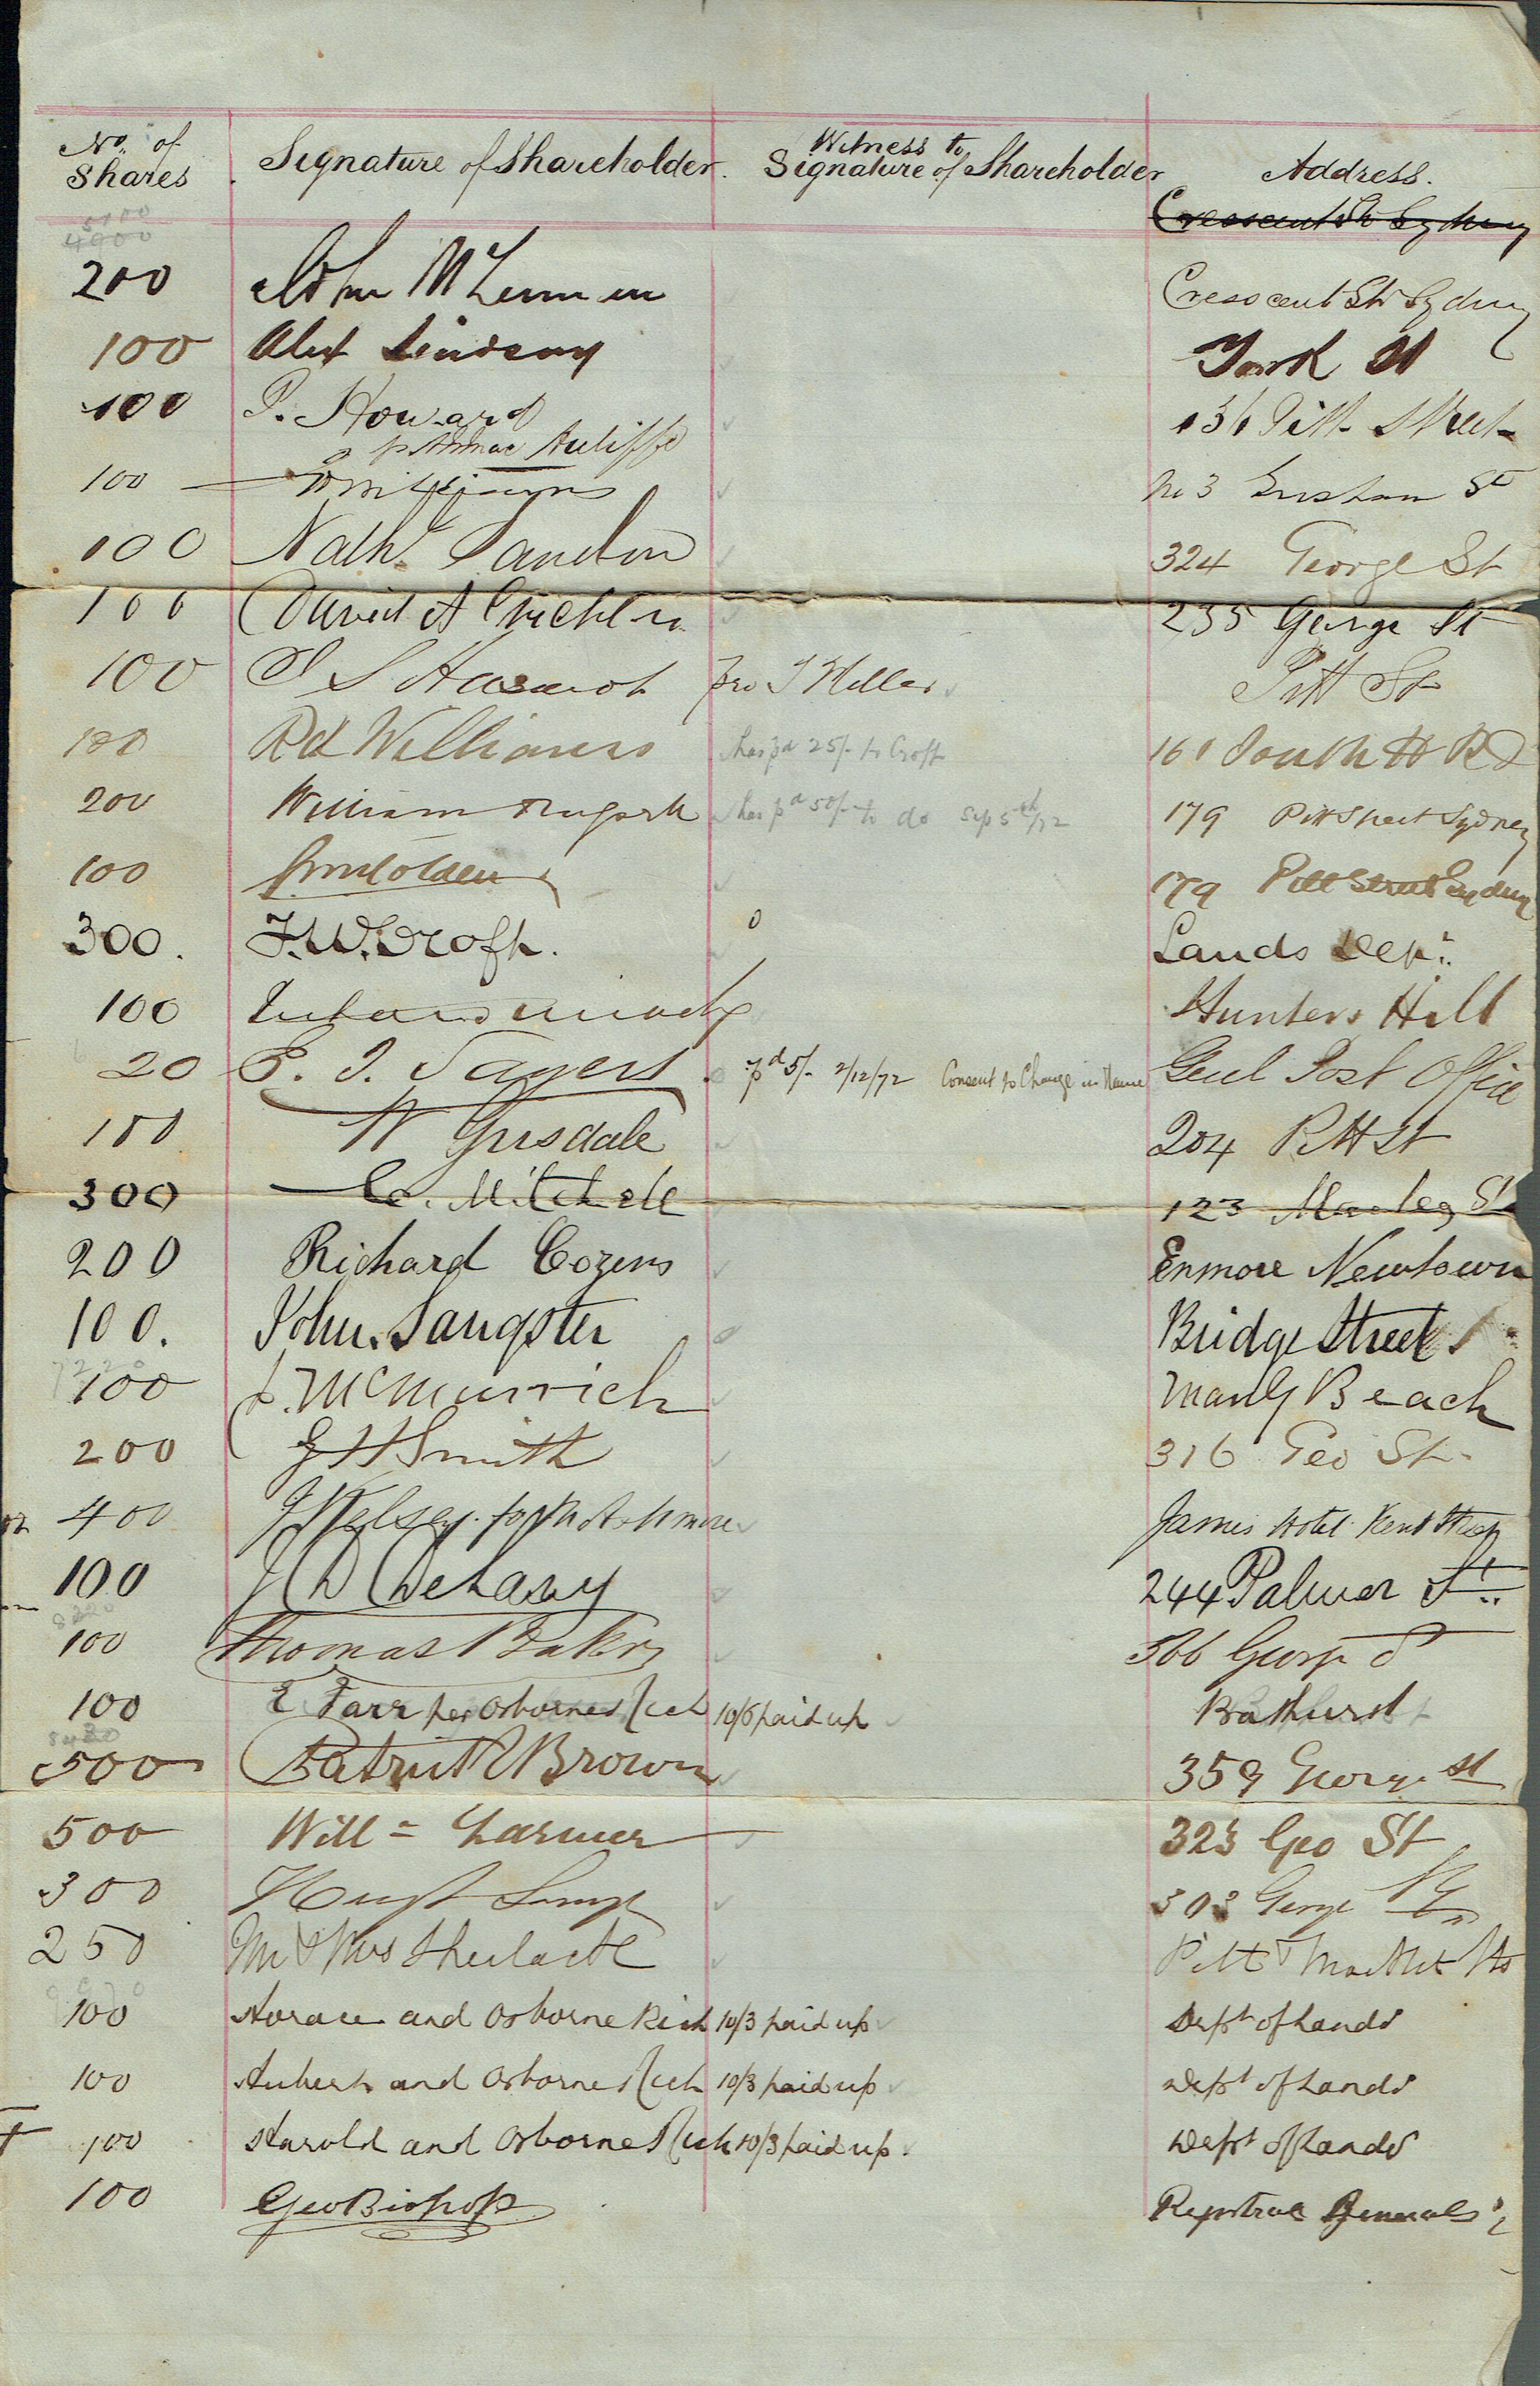 No. of Shares Signature of Shareholder. Witness to Signature of Shareholder Address.
Crescent St Sydney
5100
4900
200 John Crescent St Sydney
100 Alex Lindsay York St
100 P. Howard 136 Pitt Street
100 No 3 St
100 Nath. 324 George St
100 David A 235 George St
100 J S pro J Pitt St
100 Rd Williams has pd 25/- to Croft 161 South H Rd
200 William has pd 50/- to do Sep 5th/72 179 Pitt Street Sydney
100 179 Pitt Street Sydney
300. F.W. Croft. 0 Lands Dept.
100 Hunters Hill
20 E. J. Sayers. pd 5/- 2/12/72 Consent to Change in Name Genl Post Office
100 W Grisdale 204 Pitt St
300 C. Mitchell 123 St
200 Richard Cozens Enmore Newtown
100. John. Sangster Bridge Street
100 J. McMurrich Manly Beach
200 G H Smith 316 Geo St.
400 J Kelsey. for James Hotel Kent Street
100 J D Delany 244 Palmer St.
100 Thomas Baker 506 George St
100 E Farr per Osborne Rich 10/6 paid up Bathurst
500 Patrick Brown 359 George St
500 Will = Larmer 323 Geo St
300 303 George St
250 Mr & Mrs Pitt & Market Sts
100 Horace and Osborne Rich 10/3 paid up Dept of Lands
100 Hubert and Osborne Rich 10/3 paid up Dept of Lands
100 Harold and Osborne Rich 10/3 paid up. Dept of Lands
100 Geo Bishop Registrar Generals